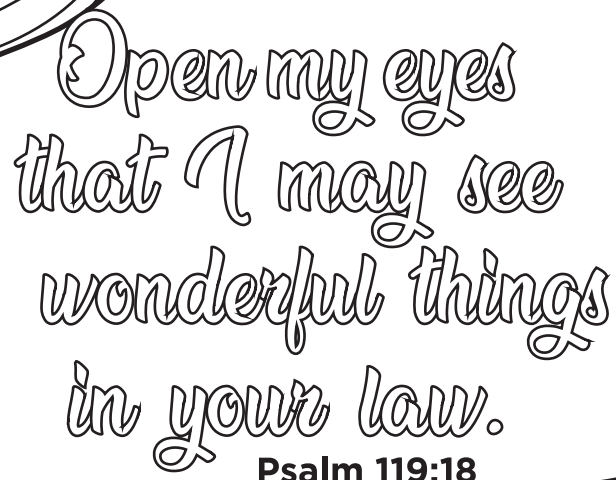 Open my eyes
that I may see
wonderful things
in your law.
Psalm 119:18